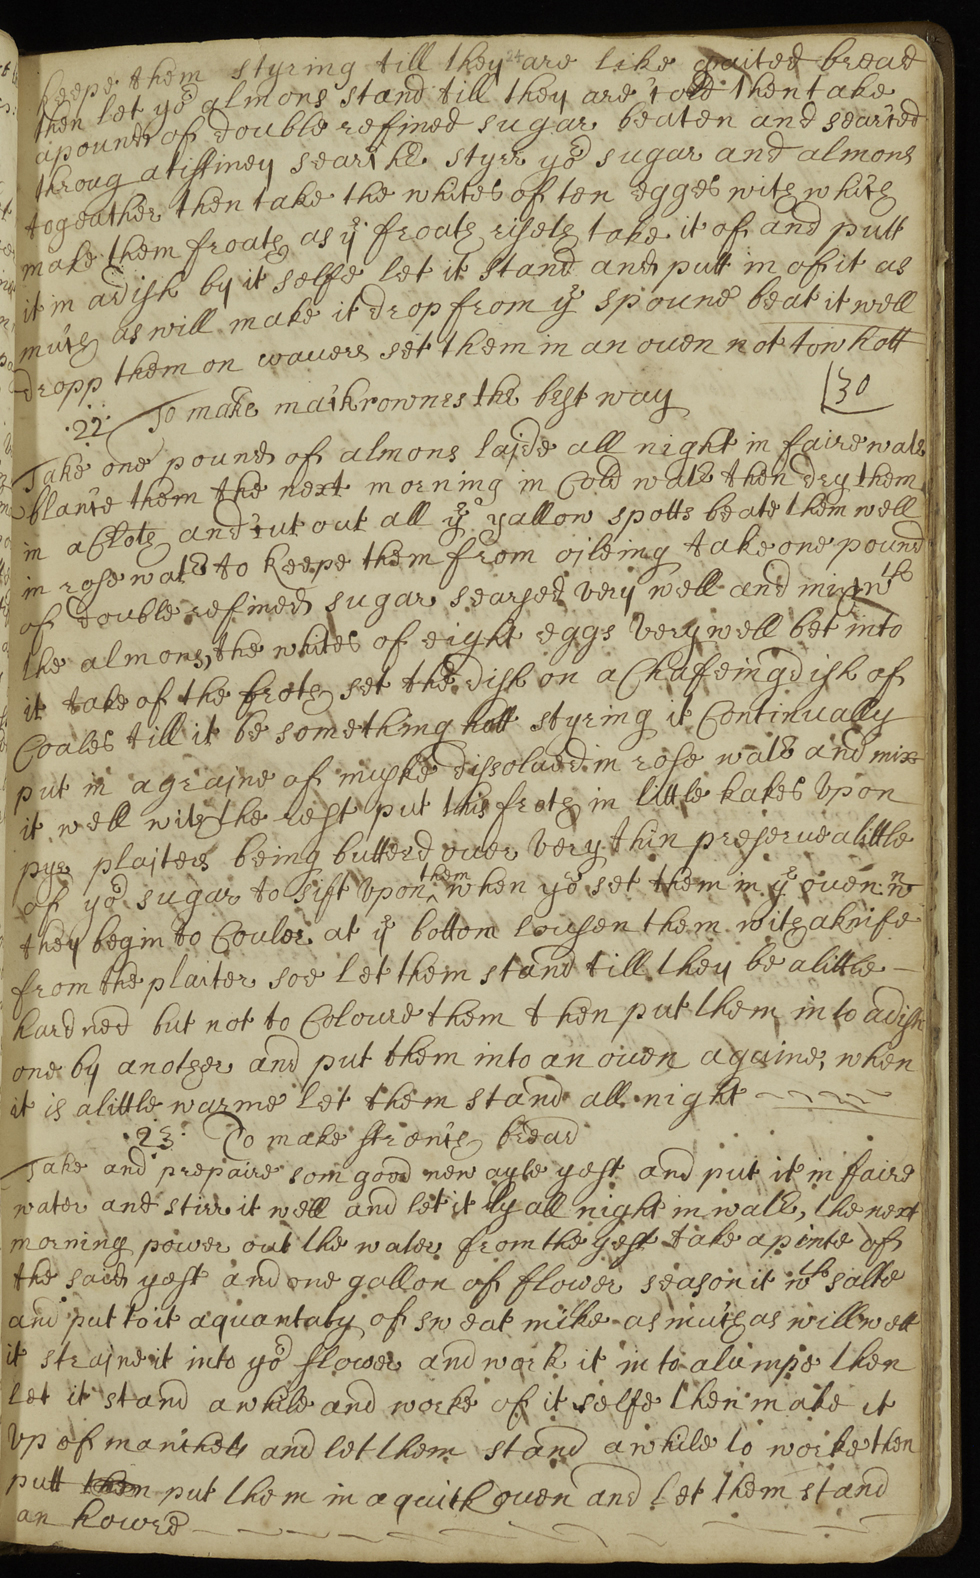 keepe them styring till they are like graited bread
then let yor almons stand till they are cold then take
a pound of double refined sugar beaten and searced
throug a tiffiney searche styrr yor sugar and almons
togeather then take the whites of ten egges with which
make them froath as ye froath riseth take it of and putt
it in a dish by it selfe let it stand and putt in of it as
much as will make it drop from ye spoune beat it well
dropp them on wavers set them in an oven not tow hott
30
22 To make mackrownes the best way
Take one pound of almons laide all night in faire water
blance them the next morning in Cold water then dry them
in a Cloth and cut out all ye yallow spotts beate them well
in rose water to keepe them from oileing take one pound
of double refined sugar searsed very well and mix wth
the almons, the whites of eight eggs very well bet into
it take of the froth set the dish on a Chafeing dish of
Coales till it be something hott styring it Continually
put in a graine of muske dissolued in rose water and mix
it well with the rest put this froth in little kakes Vpon
pye plaiters being butterd ouer very thin preserue a little
of yor sugar to sift Vpon them when yor set them in ye ouen: wn
they begin to Couler at ye bottom lousen them with a knife
from the plaiter soe let them stand till they be a little
hardned but not to Coloure them then put them into a dish
one by another and put them into an ouen againe, when
it is a little warme let them stand all night
23 To make french bread
Take and prepaire som good new ayle yest and put it in faire
water and stirr it well and let it ly all night in water, the next
morning power out the water from the yest take a pinte of
the saed yest and one gallon of flower season it wth salte
and put to it a quantaty of sweat milke as much as will wett
it straine it into yor flower and work it into a lumpe then
let it stand a while and worke of it selfe then make it
Vp of manchets and let them stand a while to worke then
putt them put them in a quick ouen and let them stand
an howre